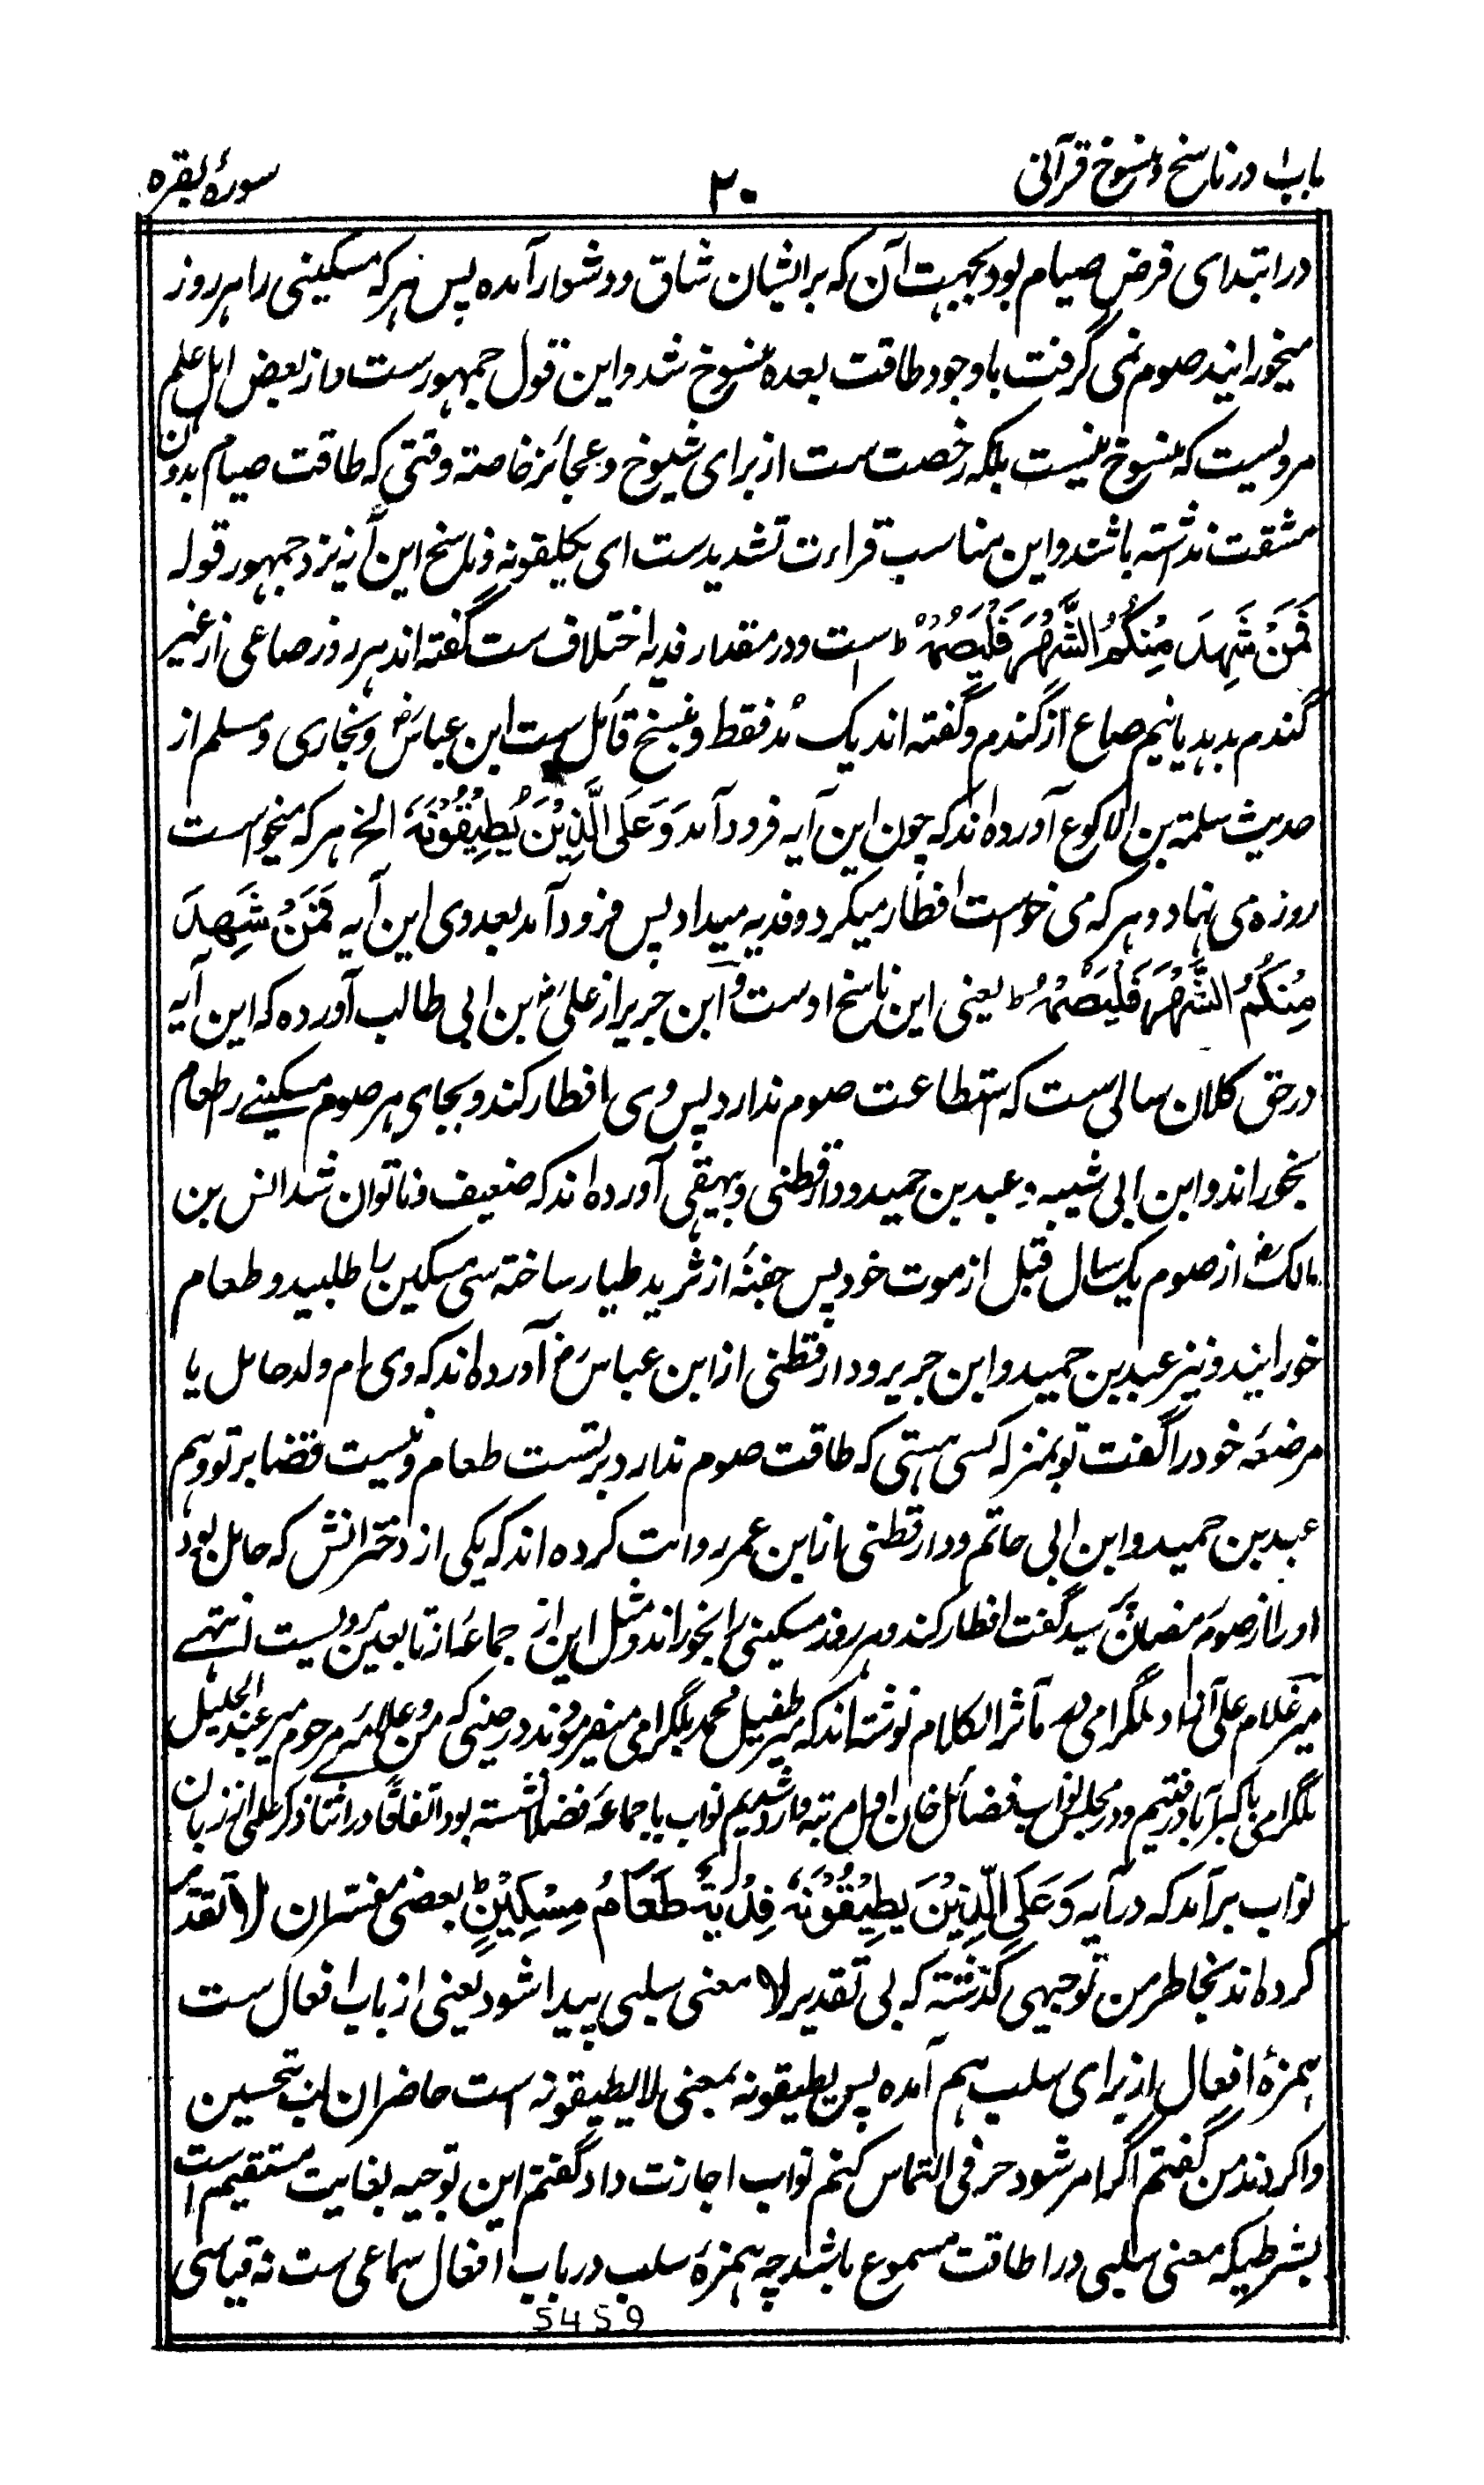 باب ۱ در ناسخ و منسوخ قرآنی
۲۰
سورهٔ بقره
در ابتدای فرض صیام بود بجهت آن که بر ایشان شاق و دشوار آمده پس هر که مسکینی را هر روز
میخورانید صوم نمی گرفت با وجود طاقت بعده منسوخ شد و این قول جمهور ست و از بعض اهل علم
مرویست که منسوخ نیست بلکه رخصت ست از برای شیوخ و عجائز خاصته وقتی که طاقت صیام بدون
مشقت نداشته باشند و این مناسب قراءت تشدید ست ای یکلیقونه و ناسخ این آیه نزد جمهور قوله
فَمَنْ شَهِدَ مِنْكُمُ الشَّهْرَ فَلْيَصُمْهُ ط است و در مقدار فدیه اختلاف ست گفته اند هر روز صاعی از غیر
گندم بدهد یا نیم صاع از گندم و گفته اند یک مُد فقط و بنسخ قائل ست ابن عباسؓ و بخاری و مسلم از
حدیث سلمة بن الاکوع آورده اند که چون این آیه فرود آمد وَعَلَى الَّذِيْنَ يُطِيْقُوْنَهُ الخ هر که میخواست
روزه می نهاد و هر که می خواست افطار میکرد و فدیه میداد پس فرود آمد بعد وی این آیه فَمَنْ شَهِدَ
مِنْكُمُ الشَّهْرَ فَلْيَصُمْهُ ط یعنی این ناسخ اوست و ابن جریر از علیؓ بن ابی طالب آورده که این آیه
در حق کلان سالی ست که استطاعت صوم ندارد پس وی افطار کند و بجای هر صوم مسکینے را طعام
بخوراند و ابن ابی شیبه و عبد بن حمید و دارقطنی و بیهقی آورده اند که ضعیف و ناتوان شد انس بن
مالکؓ از صوم یک سال قبل از موت خود پس جفنهٔ از ثرید طیار ساخته سی مسکین را طلبید و طعام
خورانید و نیز عبد بن حمید و ابن جریر و دارقطنی از ابن عباسؓ آورده اند که وی ام ولد حامل یا
مرضعهٔ خود را گفت تو بمنزلهٔ کسی هستی که طاقت صوم ندارد بر تست طعام و نیست قضا بر تو و هم
عبد بن حمید و ابن ابی حاتم و دارقطنی از ابن عمر روایت کرده اند که یکی از دخترانش که حامل بود
او را از صوم رمضان پرسید گفت افطار کند و هر روز مسکینی را بخوراند و مثل این از جماعهٔ از تابعین مرویست انتهے
میر غلام علی آزاد بلگرامی در مآثر الکلام نوشته اند که میر طفیل محمد بلگرامی میفرمودند در حینی که من و علامهٔ مرحوم میر عبد الجلیل
بلگرامی باکبرآباد رفتیم و در مجلس نواب فضائل خان اول مرتبه وارد شدیم نواب با جماعهٔ فضلا نشسته بود اتفاقاً در اثنا ذکر علمی از زبان
نواب برآمد که در آیه وَعَلَى الَّذِيْنَ يُطِيْقُوْنَهُ فِدْيَةٌ طَعَامُ مِسْكِيْنٍ ط بعضی مفسران لا تقدیر
کرده اند بخاطر من توجیهی گذشته که بی تقدیر لا معنی سلبی پیدا شود یعنی از باب افعال ست
همزهٔ افعال از برای سلب هم آمده پس یطیقونه بمعنی لا یطیقونه است حاضران لب تحسین
وا کردند من گفتم اگر امر شود حرفی التماس کنم نواب اجازت داد گفتم این توجیه بغایت مستقیم است
بشرطیکه معنی سلبی در اطاقت مسموع باشد چه همزهٔ سلب در باب افعال سماعی ست نه قیاسی
5459